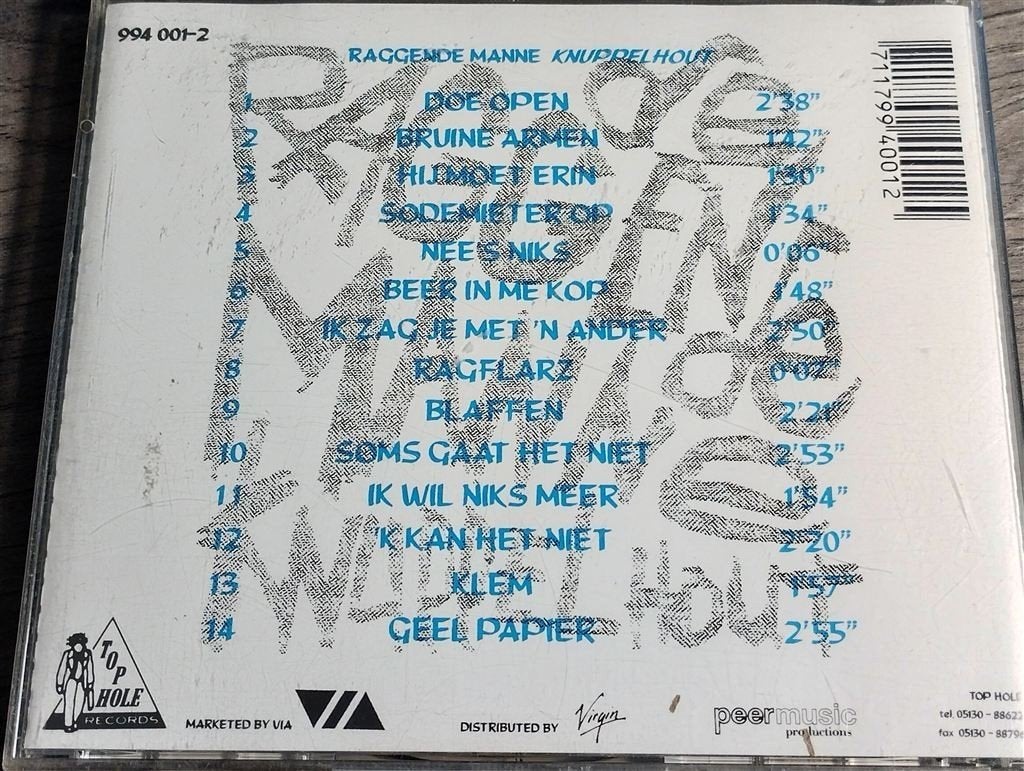 994 001-2
RAGGENDE MANNE KNUPPELHOUT
1 DOE OPEN 2'38"
2 BRUINE ARMEN 1'42"
3 HIJ MOET ERIN 1'30"
4 SODEMIETER OP 1'34"
5 NEE'S NIKS 0'06"
6 BEER IN ME KOP 1'48"
7 IK ZAG JE MET 'N ANDER 2'50"
8 RAGFLARZ 0'07"
9 BLAFFEN 2'21"
10 SOMS GAAT HET NIET 2'53"
11 IK WIL NIKS MEER 1'54"
12 'K KAN HET NIET 2'20"
13 KLEM 1'57"
14 GEEL PAPIER 2'55"
DE
RAGGENDE
MANNE
KNUPPELHOUT
71179940012
TOP
HOLE
RECORDS
MARKETED BY VIA
VIA
DISTRIBUTED BY Virgin
peermusic
productions
TOP HOLE
tel. 05130 - 8862
fax 05130 - 8879